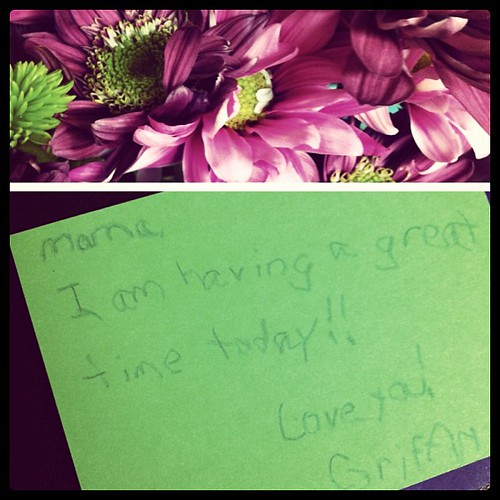 mama,
I am having a great
time today!!
Love ya!
Griffin